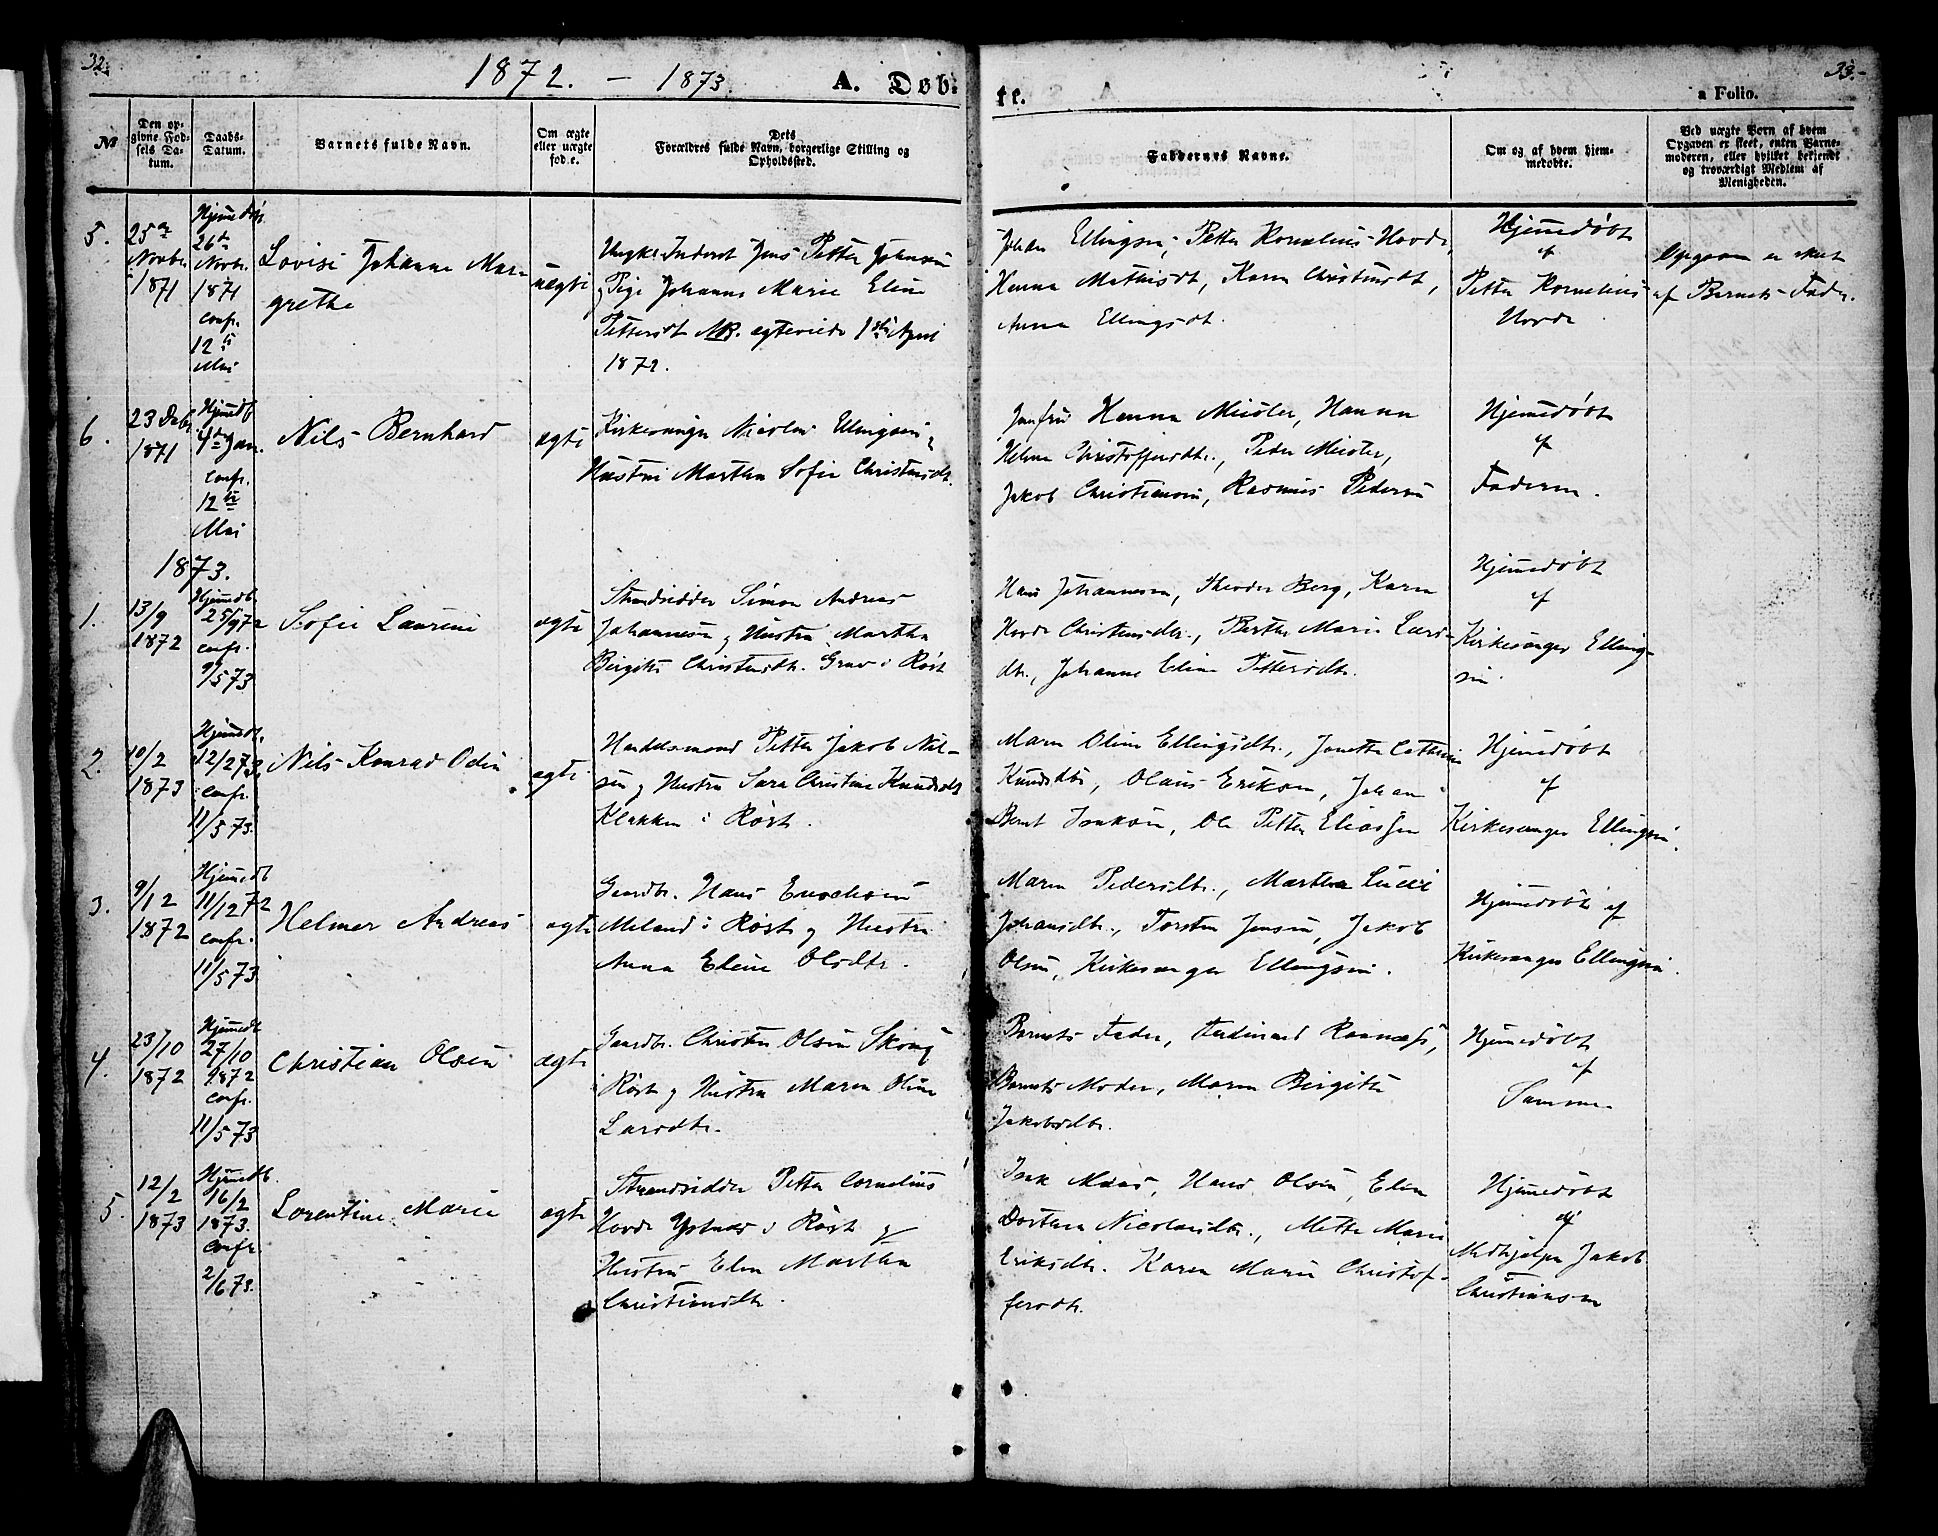 32.
1872. – 1873.
A. Døb-
№
Den op-
givne Fød-
sels Da-
tum.
Daabs-
Datum.
Barnets fulde Navn.
Om ægte
eller uægte
født.
Dets
Forældres fulde Navn, borgerlige Stilling og
Opholdssted.
5.
25de
Novbr.
1871
Hjemmedøbt
26de
Novbr.
1871
Conf.
12te
Mai
Lovise Johanne Mar-
grethe
uægte
Ungk. Inderst Jens Petter Johnsen
og Pige Johanna Marie Eline
Pettersdt NB. egteviede 1ste April
1872.
6.
23 Debr.
1871
Hjemdb.
4de Jan.
Conf.
12te
Mai
Nils Bernhard
ægte
Kirkesanger Nicolai Ellingsen og
Hustru Martha Sofie Christensdt.
1873.
1.
13/9
1872
Hjemdb.
25/9 72
Conf.
9/5 73
Sofie Laurine
ægte
Strandsidder Simon Andreas
Johannesen og Hustru Martha
Birgitte Christensdt. Grav i Røst
2.
10/2
1873
Hjemdb.
12/2 73.
Conf.
11/5 73.
Nils Konrad Odin
ægte
Handelsmand Petter Jakob Nil-
sen og Hustru Sara Christine Knudsdt
Klakken i Røst.
3.
9/12
1872
Hjemdb
11/12 72
Conf.
11/5 73.
Helmer Andreas
ægte
Gaardbr. Hans Enochsen
Meland i Røst og Hustru
Anna Eline Olsdtr.
4.
23/10
1872
Hjemdb
27/10
1872
Conf.
11/5 73
Christian Olsen
ægte
Gaardbr. Christen Olsen Skong
i Røst og Hustru Maren Oline
Larsdtr.
5.
12/2
1873
Hjemdb.
16/2
1873.
Conf.
2/6 73.
Lorentine Marie
ægte
Strandsidder Petter Cornelius
Hovde Ystnes i Røst og
Hustru Elen Martha
Christiansdtr.
te.
33.
a Folio.
Faddernes Navne.
Om og af hvem hjem-
medøbte.
Ved uægte Børn af hvem
Opgaven er skeet, enten Barne-
moderen, eller hvilket bekjendt
og troværdigt Medlem af
Menigheden.
Johan Ellingsen, Petter Kornelius Hovde,
Hanna Mathisdt, Karen Christensdt,
Anna Ellingsdt.
Hjemmedøbt
af
Petter Kornelius
Hovde
Opgaven er skeet
af Barnets Fader.
Jomfru Hanna Meisler, Hanna
Helena Christoffersdtr., Peder Meisler,
Jakob Christiansen, Rasmus Pedersen
Hjemmedøbt
af
Faderen.
Hans Johannesen, Theodor Berg, Karen
Hovde Christensdtr., Berthe Marie Lars-
dtr., Johanne Eline Pettersdtr.
Hjemmedøbt
af
Kirkesanger Elling-
sen.
Maren Oline Ellingsdtr., Janette Cathrine
Knudsdtr, Olaus Eriksen, Johan
Bernt Isaksen, Ole Petter Eliassen
Hjemmedøbt
af
Kirkesanger Ellingsen.
Maren Pedersdtr., Martha Lucie
Johansdtr., Torsten Jensen, Jakob
Olsen, Kirkesanger Ellingsen.
Hjemmedøbt af
Kirkesanger Ellingsen.
Barnets Fader, Ferdinand Rannæss,
Barnets Moder, Maren Birgitte
Jakobsdtr.
Hjemmedøbt
af
Samme
Isak Maas, Hans Olsen, Elen
Dorthea Nicolaisdtr., Mette Marie
Eriksdtr. Karen Marie Christof-
fersdtr.
Hjemmedøbt
af
Medhjelper Jakob
Christiansen